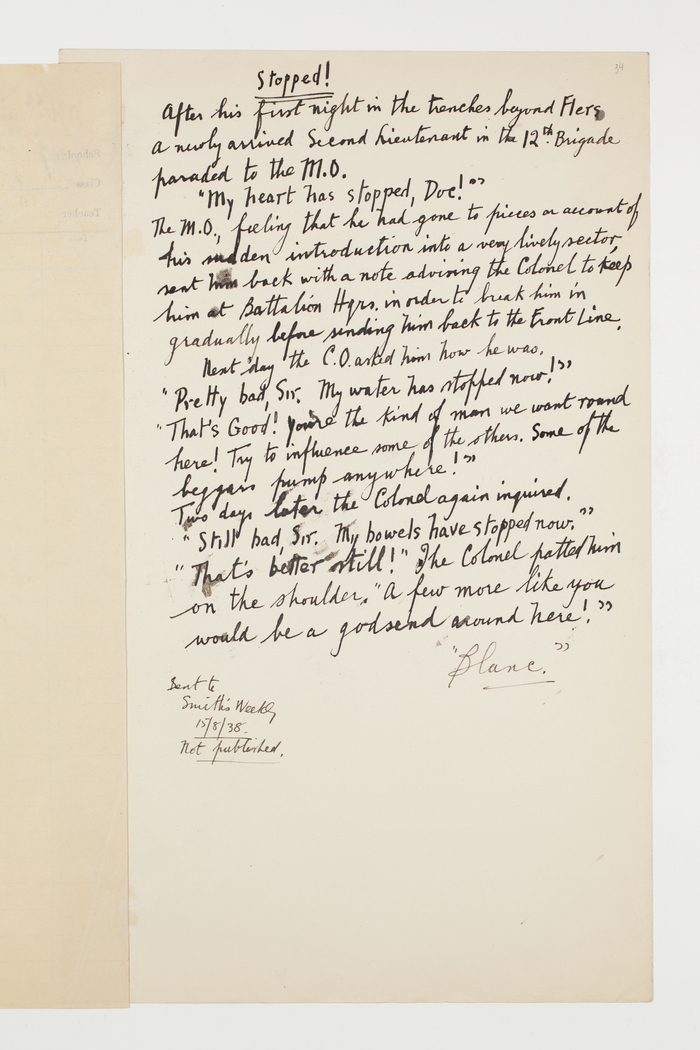 34
Stopped!
After his first night in the trenches beyond Flers
a newly arrived Second Lieutenant in the 12th Brigade
paraded to the M.O.
"My heart has stopped, Doc!"
The M.O., feeling that he had gone to pieces on account of
his sudden introduction into a very lively sector,
sent him back with a note advising the Colonel to keep
him at Battalion Hqrs. in order to break him in
gradually before sending him back to the Front Line.
Next day the C.O. asked him how he was.
"Pretty bad, Sir. My water has stopped now!"
"That's Good! You're the kind of man we want round
here! Try to influence some of the others. Some of the
beggars pump anywhere!"
Two days later the Colonel again inquired.
"Still bad, Sir. My bowels have stopped now."
"That's better still!" The Colonel patted him
on the shoulder. "A few more like you
would be a godsend around here!"
"Blanc."
Sent to
Smith's Weekly
15/8/38.
Not published.